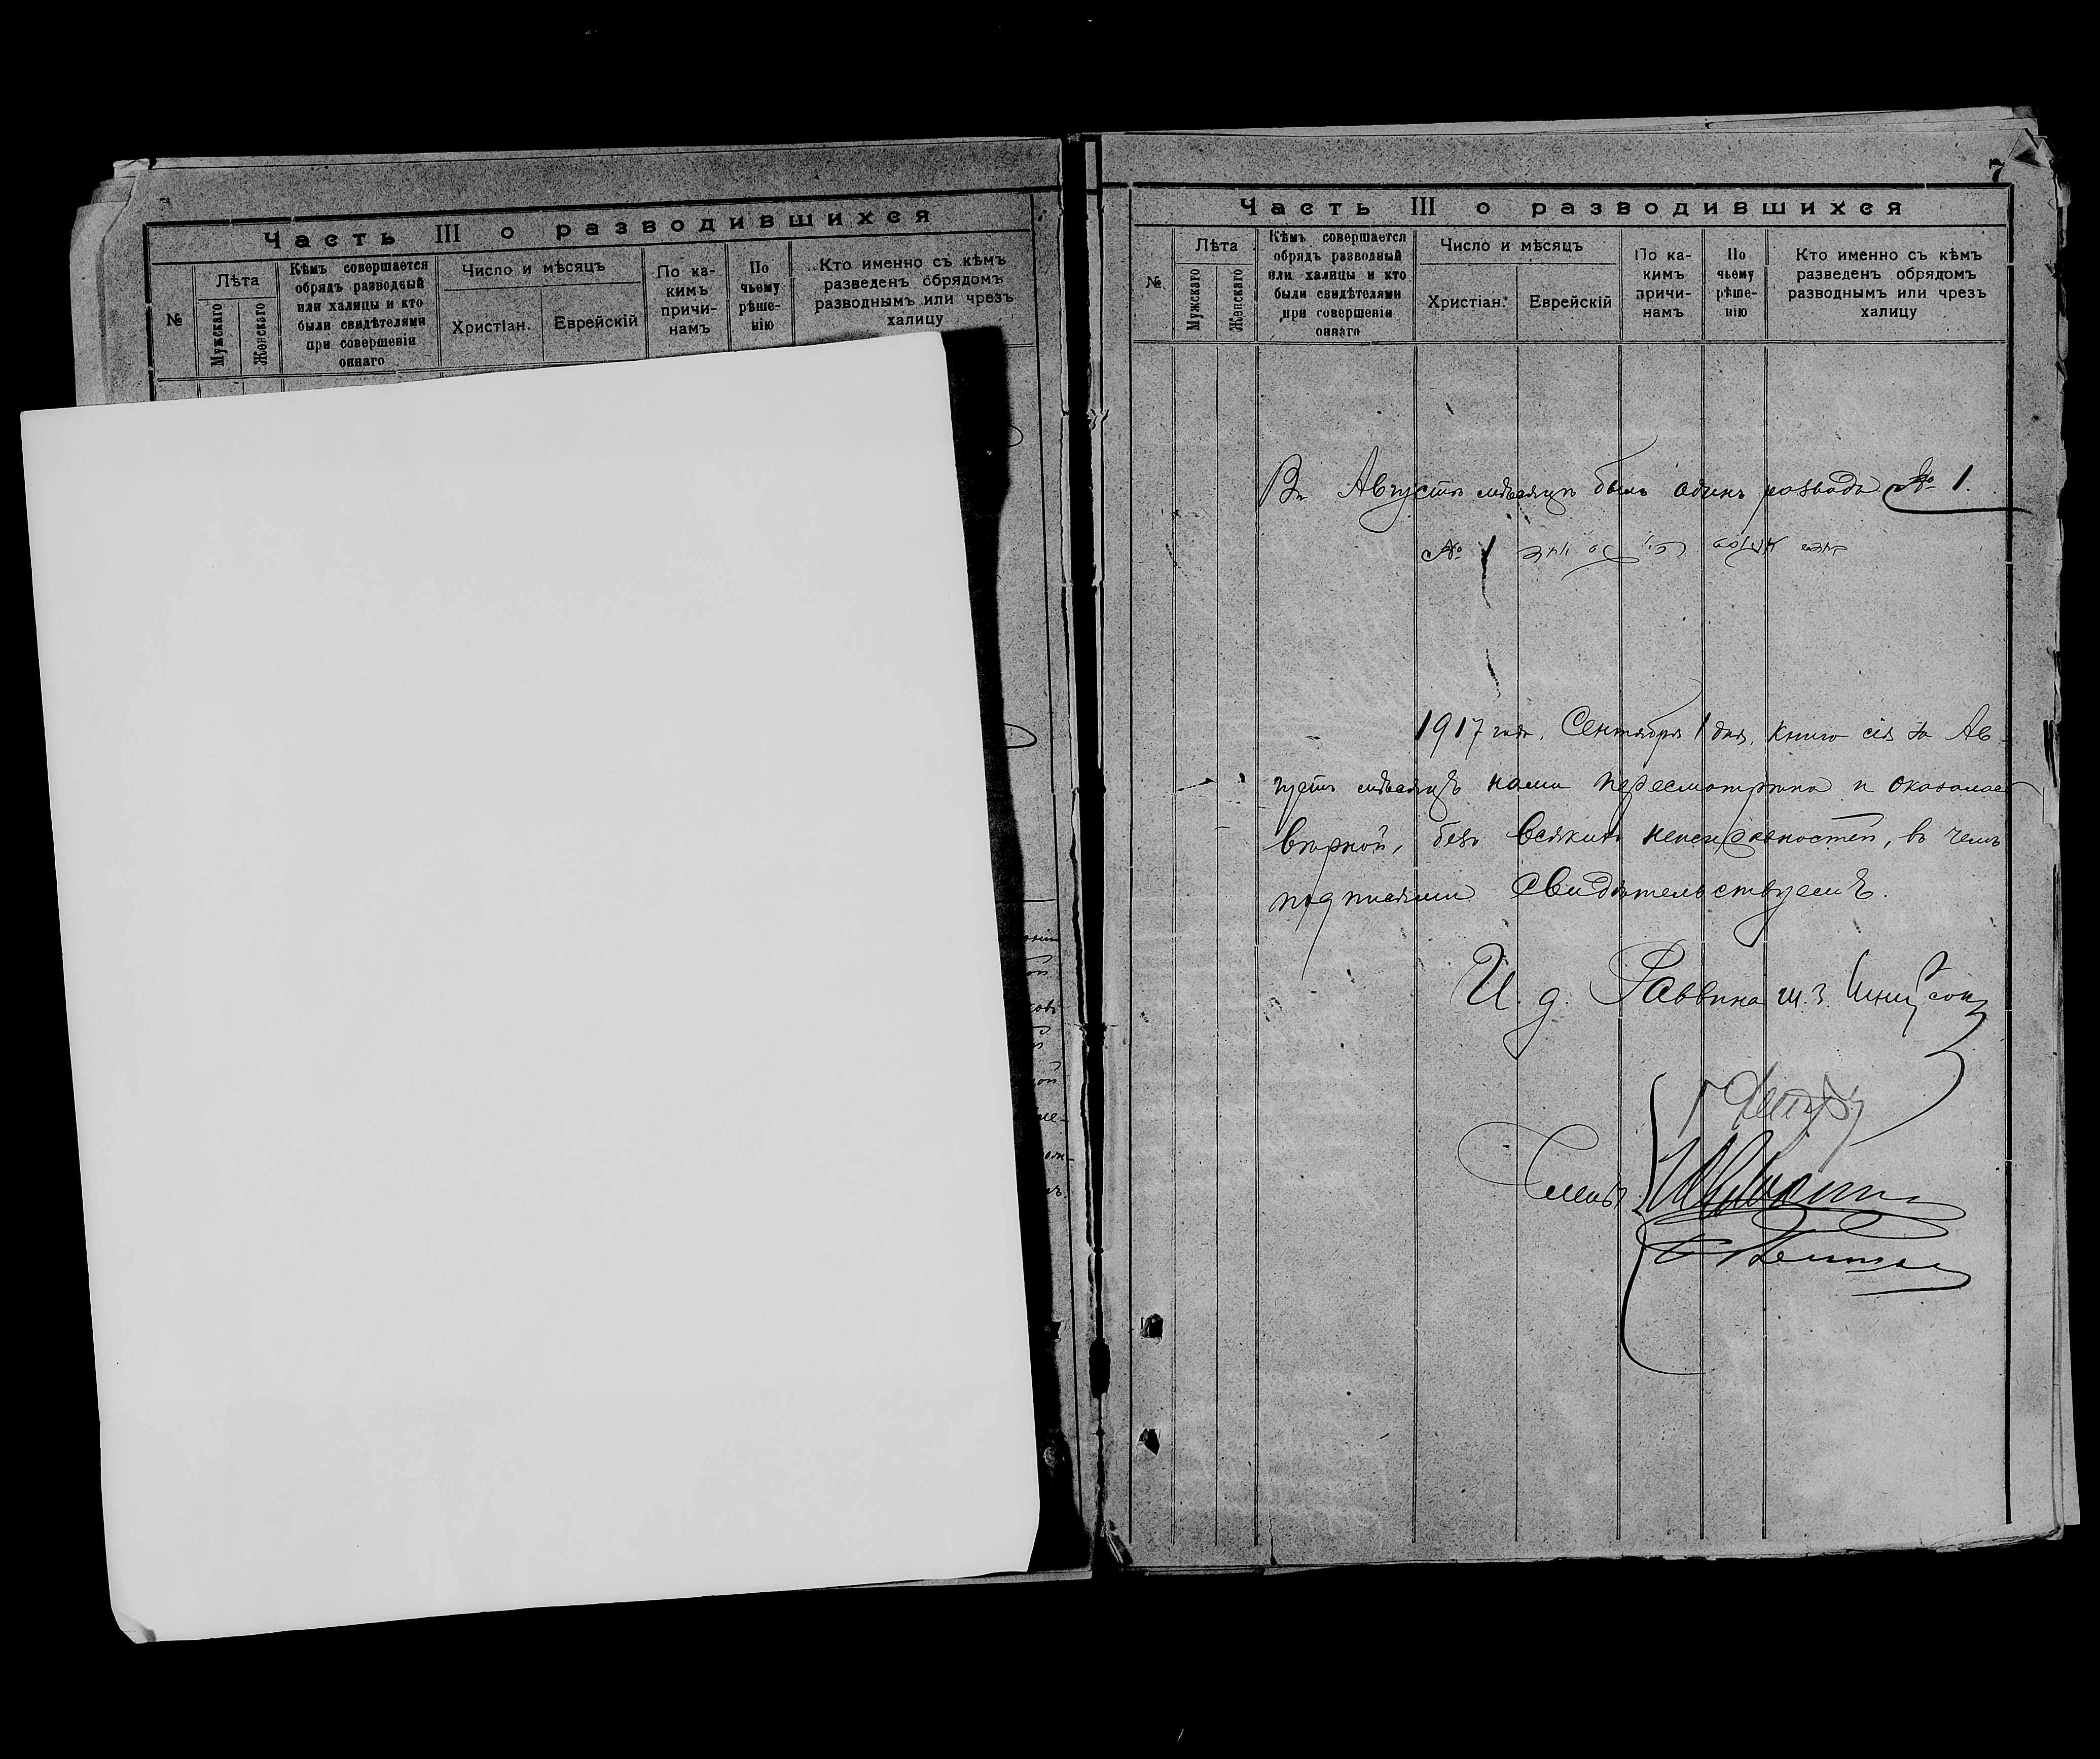 Часть III о разводившихся
№
Лѣта
Мужскаго
Женскаго
Кѣмъ совершается
обрядъ разводный
или халицы и кто
были свидѣтелями
при совершеніи
онаго
Число и мѣсяцъ
Христіан.
Еврейскій
По ка-
кимъ
причи-
намъ
По
чьему
рѣше-
нію
Кто именно съ кѣмъ
разведенъ обрядомъ
разводнымъ или чрезъ
халицу
7
Часть III о разводившихся
№
Лѣта
Мужскаго
Женскаго
Кѣмъ совершается
обрядъ разводный
или халицы и кто
были свидѣтелями
при совершеніи
онаго
Число и мѣсяцъ
Христіан.
Еврейскій
По ка-
кимъ
причи-
намъ
По
чьему
рѣше-
нію
Кто именно съ кѣмъ
разведенъ обрядомъ
разводнымъ или чрезъ
халицу
Въ Августѣ мѣсяцѣ былъ одинъ разводъ № 1.
№ 1
1917 года, Сентября 1 дня, книга сія за Ав-
густъ мѣсяцъ нами пересмотрѣна и оказалась
вѣрной, безъ всякихъ неисправностей, въ чемъ
подписями свидѣтельствуемъ.
И. д. Раввина Ш. З.
Члены